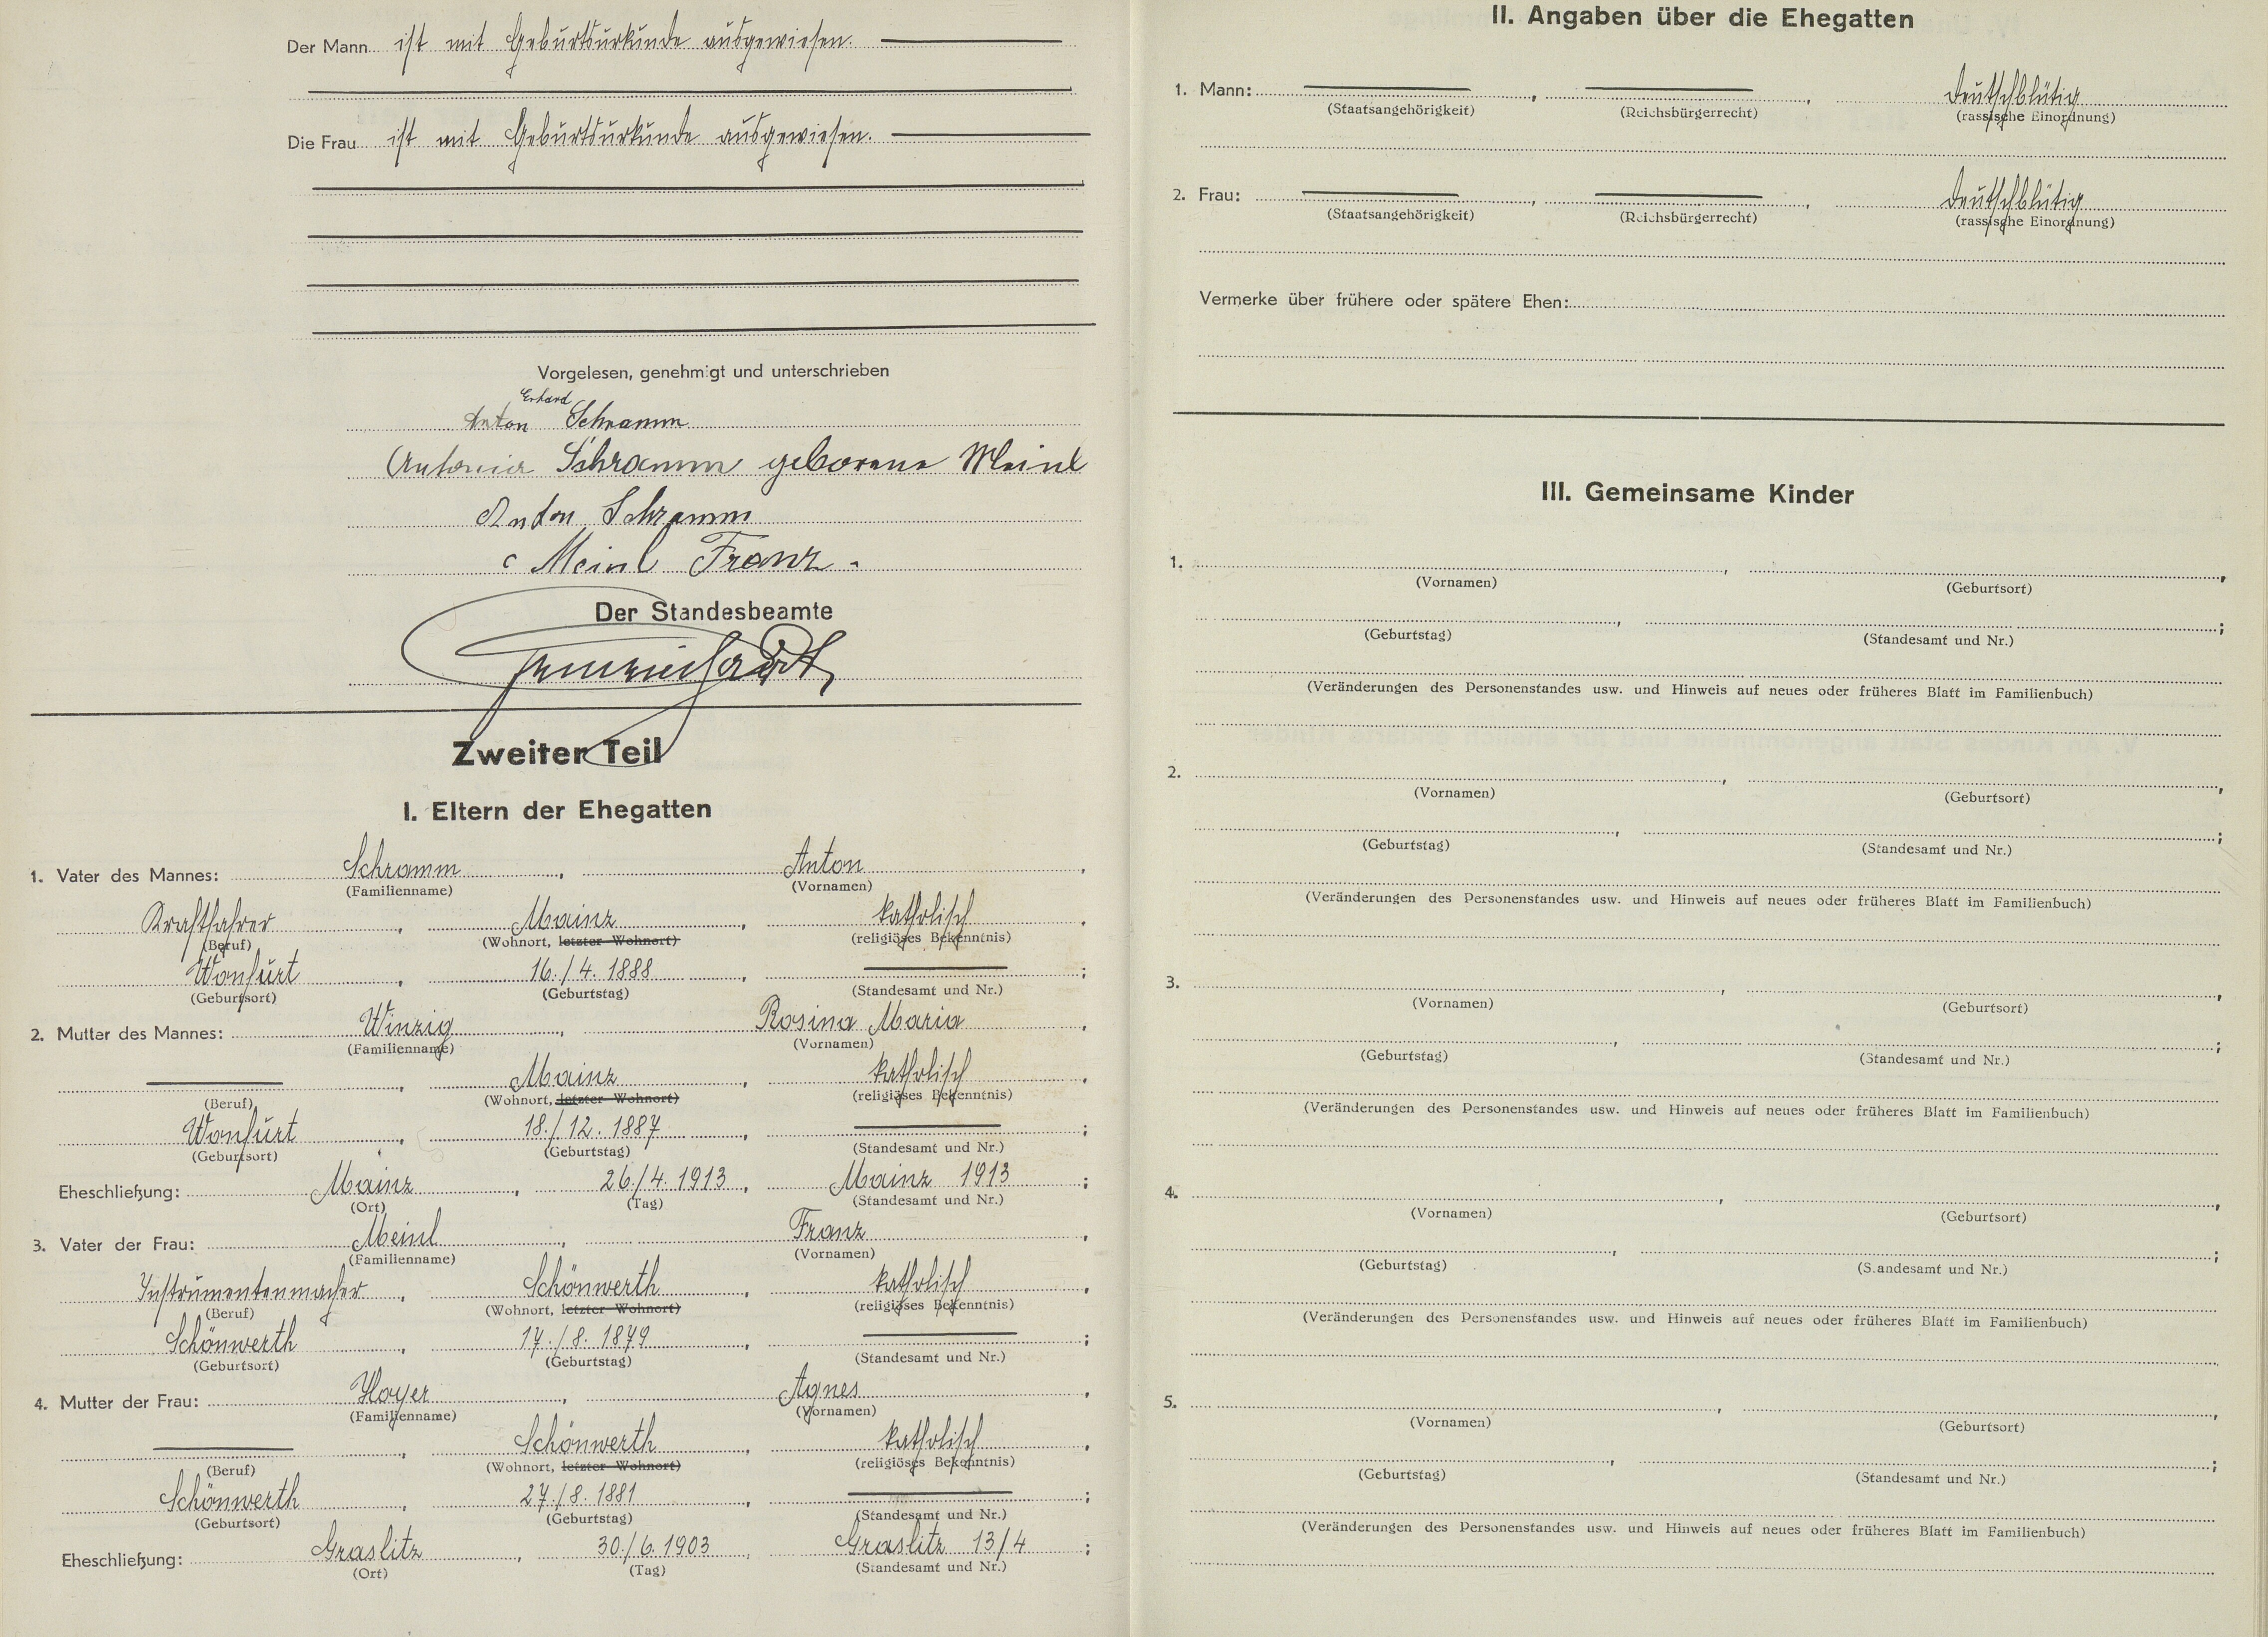 Der Mann ist mit Geburtsurkunde ausgewiesen.
Die Frau ist mit Geburtsurkunde ausgewiesen.
Vorgelesen, genehmigt und unterschrieben
Erhard
Anton Schramm
Antonia Schramm geborene Meinl
Anton Schramm
Meinl Franz.
Der Standesbeamte
Zweiter Teil
I. Eltern der Ehegatten
1. Vater des Mannes: Schramm, Anton,
(Familienname) (Vornamen)
Kraftfahrer, Mainz, katholisch,
(Beruf) (Wohnort, letzter Wohnort) (religiöses Bekenntnis)
Wonfurt, 16./4. 1888, ;
(Geburtsort) (Geburtstag) (Standesamt und Nr.)
2. Mutter des Mannes: Winzig, Rosina Maria,
(Familienname) (Vornamen)
, Mainz, katholisch,
(Beruf) (Wohnort, letzter Wohnort) (religiöses Bekenntnis)
Wonfurt, 18./12. 1887, ;
(Geburtsort) (Geburtstag) (Standesamt und Nr.)
Eheschließung: Mainz, 26./4. 1913, Mainz 1913;
(Ort) (Tag) (Standesamt und Nr.)
3. Vater der Frau: Meinl, Franz,
(Familienname) (Vornamen)
Instrumentenmacher, Schönwerth, katholisch,
(Beruf) (Wohnort, letzter Wohnort) (religiöses Bekenntnis)
Schönwerth, 17./8. 1879, ;
(Geburtsort) (Geburtstag) (Standesamt und Nr.)
4. Mutter der Frau: Hoyer, Agnes,
(Familienname) (Vornamen)
, Schönwerth, katholisch,
(Beruf) (Wohnort, letzter Wohnort) (religiöses Bekenntnis)
Schönwerth, 27./8. 1881, ;
(Geburtsort) (Geburtstag) (Standesamt und Nr.)
Eheschließung: Graslitz, 30./6. 1903, Graslitz 13/4;
(Ort) (Tag) (Standesamt und Nr.)
II. Angaben über die Ehegatten
1. Mann: , , deutschblütig
(Staatsangehörigkeit) (Reichsbürgerrecht) (rassische Einordnung)
2. Frau: , , deutschblütig
(Staatsangehörigkeit) (Reichsbürgerrecht) (rassische Einordnung)
Vermerke über frühere oder spätere Ehen:
III. Gemeinsame Kinder
1. , ,
(Vornamen) (Geburtsort)
, ;
(Geburtstag) (Standesamt und Nr.)
(Veränderungen des Personenstandes usw. und Hinweis auf neues oder früheres Blatt im Familienbuch)
2. , ,
(Vornamen) (Geburtsort)
, ;
(Geburtstag) (Standesamt und Nr.)
(Veränderungen des Personenstandes usw. und Hinweis auf neues oder früheres Blatt im Familienbuch)
3. , ,
(Vornamen) (Geburtsort)
, ;
(Geburtstag) (Standesamt und Nr.)
(Veränderungen des Personenstandes usw. und Hinweis auf neues oder früheres Blatt im Familienbuch)
4. , ,
(Vornamen) (Geburtsort)
, ;
(Geburtstag) (S.andesamt und Nr.)
(Veränderungen des Personenstandes usw. und Hinweis auf neues oder früheres Blatt im Familienbuch)
5. , ,
(Vornamen) (Geburtsort)
, ;
(Geburtstag) (Standesamt und Nr.)
(Veränderungen des Personenstandes usw. und Hinweis auf neues oder früheres Blatt im Familienbuch)